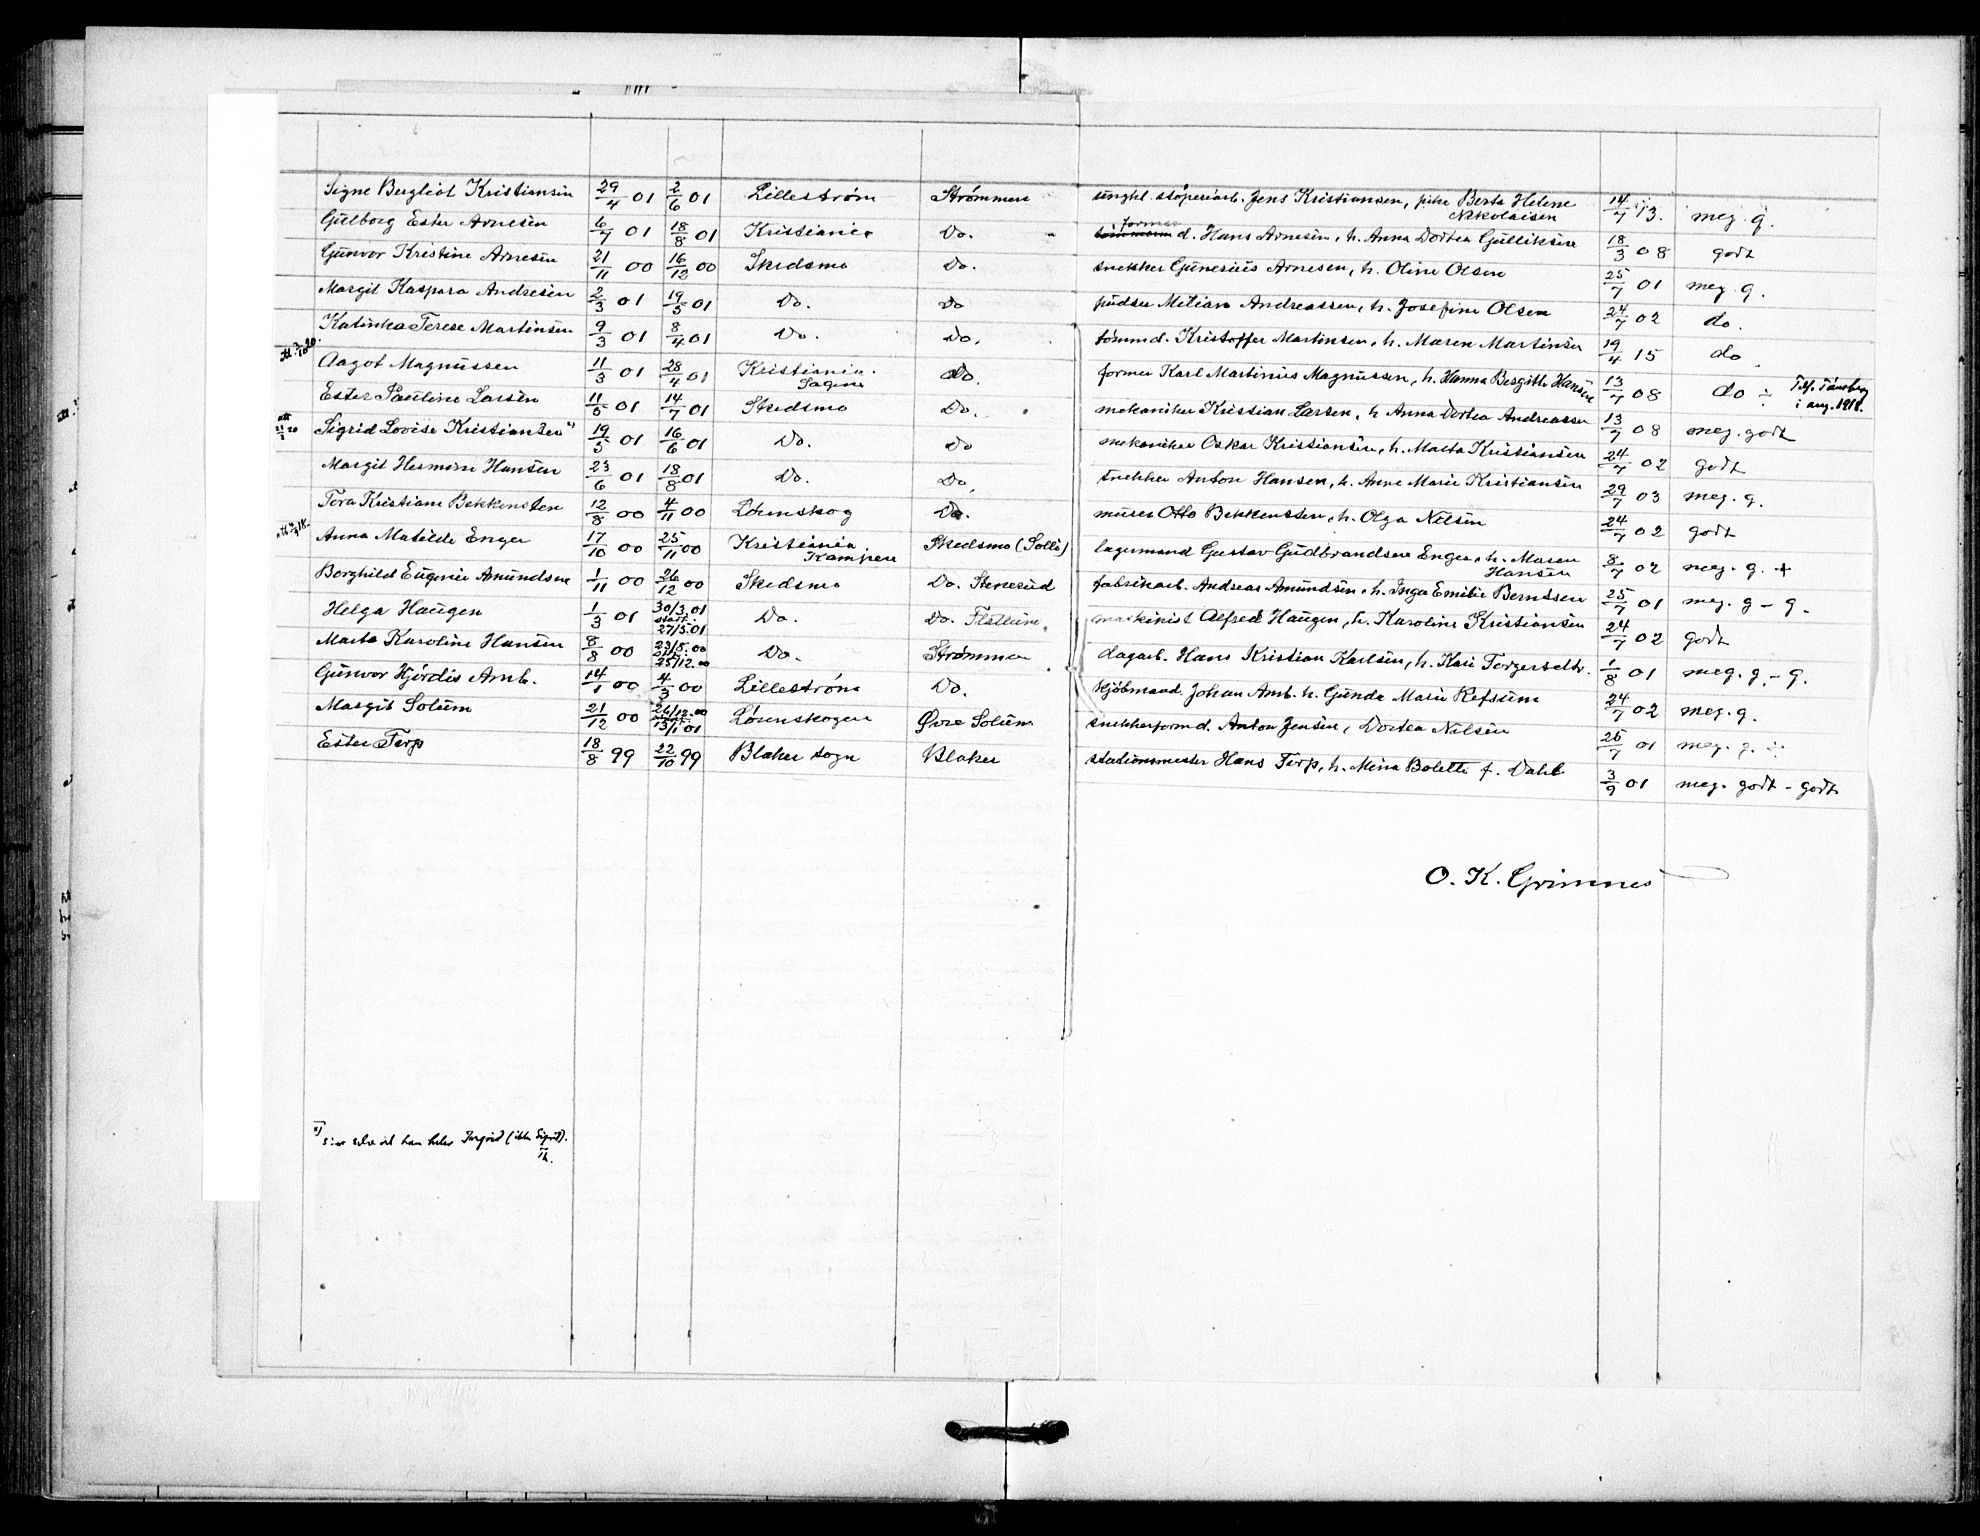 Signe Bergliot Kristiansen 29/4 01 2/6 01 Lillestrøm Strømmen ungkl. støperiarb. Jens Kristiansen, pike Berta Helene Nikolaisen 14/7 13. meg. g.
Gulborg Ester Arnesen 6/7 01 18/8 01 Kristiania Do. former d. Hans Arnesen, h. Anna Dortea Gulliksen 18/3 08 godt
Gunvor Kristine Arnesen 21/11 00 16/12 00 Skedsmo Do. snekker Gunerius Arnesen, h. Oline Olsen 25/7 01 meg. g.
Margit Kaspara Andresen 2/3 01 19/5 01 Do. Do pudser Milian Andreassen, h. Josefine Olsen 24/7 02 do.
Katinka Terese Martinsen 9/3 01 8/4 01 Do. Do. tømmd. Kristoffer Martinsen, h. Maren Martinsen 19/4 15 do
att. 3/10 20. Aagot Magnussen 11/3 01 28/4 01 Kristiania. Sagene Do. former Karl Martinius Magnussen, h. Hanna Bergitte Hansen 13/7 08 do ÷ Tilf. Tønsberg i aug. 1918.
Ester Pauline Larsen 11/5 01 14/7 01 Skedsmo Do. mekaniker Kristian Larsen, h. Anna Dortea Andreassen 13/7 08 meg. godt
att 11/2 20 Sigrid Lovise Kristiansen x) 19/5 01 16/6 01 Do. do mekaniker Oskar Kristiansen, h. Marta Kristiansen 24/7 02 godt
Margit Hermine Hansen 23/6 01 18/8 01 Do. Do. snekker Anton Hansen, h. Anne Marie Kristiansen 29/7 03 meg. g.
Tora Kristiane Bekkensten 12/8 00 4/11 00 Lørenskog Do. murer Otto Bekkensten, h. Olga Nilsen 24/7 02 godt
Anna Matilde Enger 17/10 00 25/11 00 Kristiania Kampen Skedsmo (Solli) lagermand Gustav Gudbrandsen Enger, h. Maren Hansen 8/7 02 meg. g. +
Borghild Eugenie Amundsen 1/11 00 26/12 00 Skedsmo Do. Stenerud fabrikarb. Andreas Amundsen, h. Inga Emilie Berntsen 25/7 01 meg. g - g.
Helga Haugen 1/3 01 30/3 01 stadf. 27/5 01 Do. Do. maskinist Alfred Haugen, h. Karoline Kristiansen 24/7 02 godt
Marta Karoline Hansen 8/8 00 23/8. 00 25/12. 00 Do. Strømmen dagarb. Hans Kristian Karlsen, h. Kari Torgersdtr. 1/8 01 meg. g. - g.
Gunvor Hjørdis Arnb. 14/1 00 4/3 00 Lillestrøm Do. kjøbmand. Johan Arnb. h. Gunda Marie Refsum 24/7 02 meg. g.
Margit Solum 21/12 00 26/12. 00 13/1 01 Lørenskogen Øvre Solum snekkerformd. Anton Jensen, Dortea Nilsen 25/7 01 meg. g. ÷
Ester Terp 18/8 99 22/10 99 Blaker sogn Blaker stationsmester Hans Terp, h. Mina Bolette f. Dahl 3/9 01 meg. godt - godt
O. K. Grimnes
x) sier selv at han heter Ingrid (ikke Sigrid).